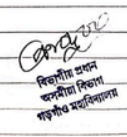 বিভাগীয় প্ৰধান
অসমীয়া বিভাগ
গড়গাঁও মহাবিদ্যালয়